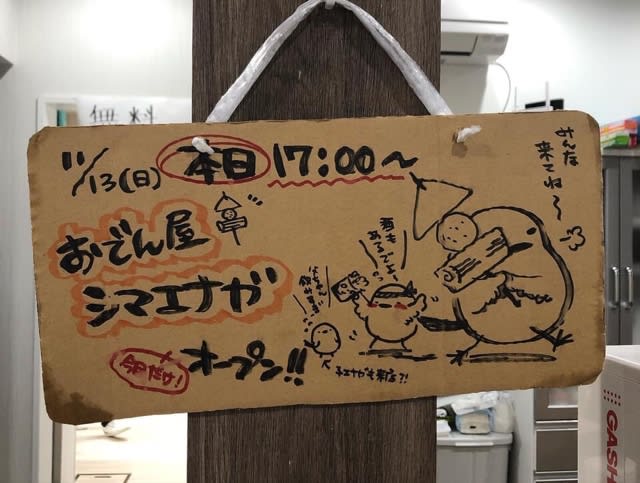 無料
11/13(日) 本日 17:00〜
おでん屋
シマエナガ
今日だけ!
オープン!!
みんな
来てね〜
酒も
あるでよ〜
チエナガも来店?!
GASH